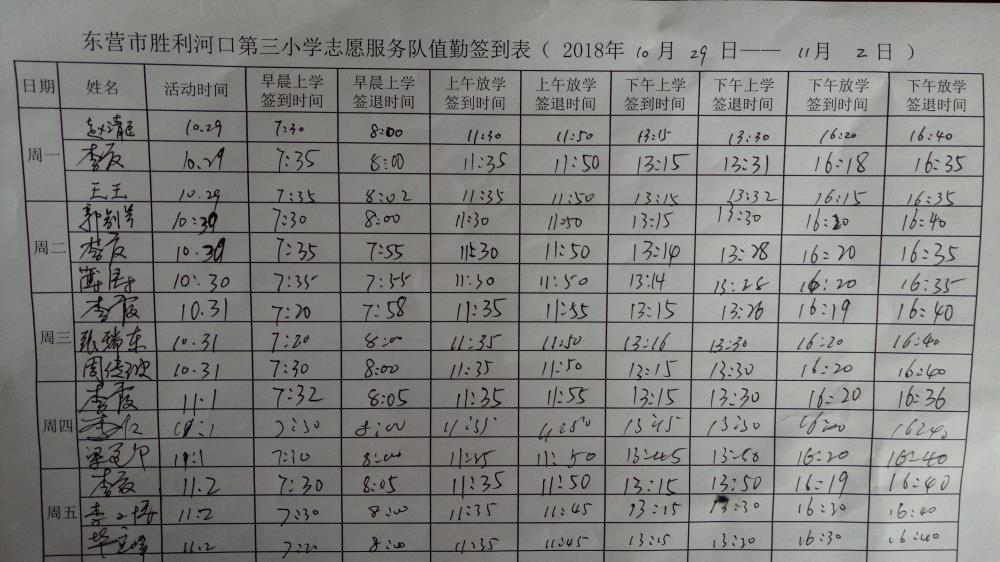 东营市胜利河口第三小学志愿服务队值勤签到表（2018年 10 月 29 日—— 11月 2 日）
日期 姓名 活动时间 早晨上学签到时间 早晨上学签退时间 上午放学签到时间 上午放学签退时间 下午上学签到时间 下午上学签退时间 下午放学签到时间 下午放学签退时间
周一 10.29 7:30 8:00 11:30 11:50 13:15 13:30 16:20 16:40
李 10.29 7:35 8:00 11:35 11:50 13:15 13:31 16:18 16:35
王王 10.29 7:35 8:02 11:35 11:50 13:15 13:32 16:15 16:35
周二 郭 10:30 7:30 8:00 11:30 11:50 13:15 13:30 16:20 16:40
李 10.30 7:35 7:55 11:30 11:50 13:14 13:28 16:20 16:35
10.30 7:35 7:55 11:30 11:50 13:14 13:28 16:20 16:35
周三 李霞 10.31 7:20 7:58 11:35 11:55 13:15 13:26 16:19 16:40
张瑞东 10.31 7:20 8:00 11:35 11:50 13:16 13:30 16:20 16:40
周 10.31 7:30 8:00 11:35 11:50 13:15 13:30 16:20 16:40
周四 李霞 11.1 7:32 8:05 11:35 11:55 13:15 13:30 16:20 16:36
李 11.1 7:30 8:00 11:35 11:50 13:45 13:30 16:20 16:40
梁 11.1 7:30 8:00 11:45 11:50 13:45 16:20 16:40
周五 李霞 11.2 7:30 8:05 11:35 11:50 13:15 13:50 16:19 16:40
李 11.2 7:30 8:00 11:35 11:45 13:15 13:30 16:30 16:40
11.2 7:20 8:00 11:35 11:45 13:15 13:30 16:30 16:40